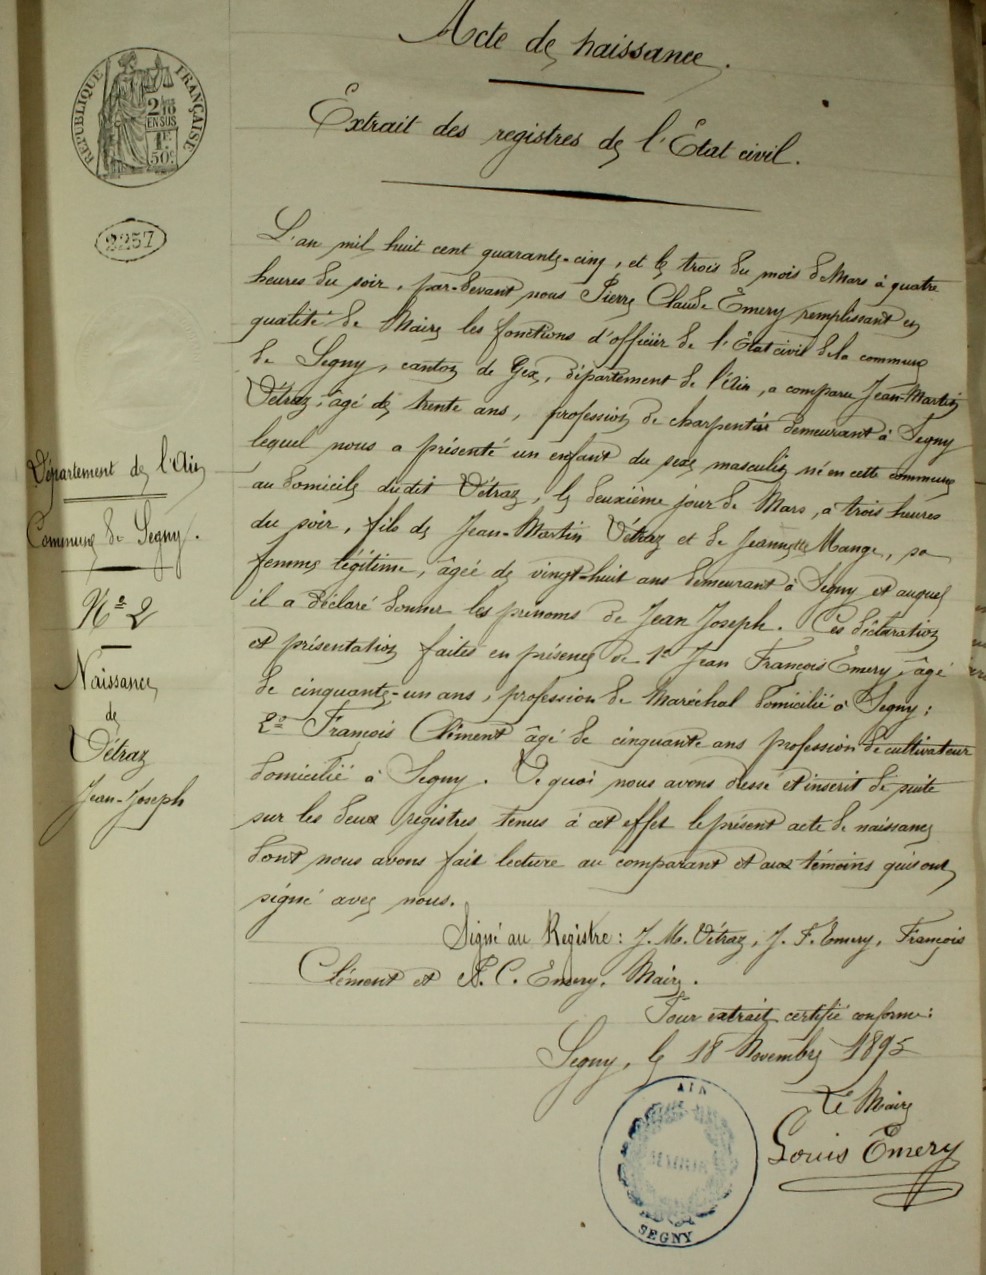 Acte de naissance.
Extrait des registres de l'Etat civil.
RÉPUBLIQUE FRANÇAISE
2/10
EN SUS
1F
50c
2257
L'an mil huit cent quarante-cinq, et le trois du mois de Mars à quatre
heures du soir, par-devant nous Pierre Claude Emery remplissant en
qualité de Maire les fonctions d'officier de l'Etat civil de la commune
de Segny, canton de Gex, département de l'Ain, a comparu Jean-Martin
Vétraz, âgé de trente ans, profession de charpentier demeurant à Segny
lequel nous a présenté un enfant du sexe masculin né en cette commune
au domicile du dit Vétraz, le deuxième jour de Mars, à trois heures
du soir, fils de Jean-Martin Vétraz et de Jeannette Mange, sa
femme légitime, âgée de vingt-huit ans demeurant à Segny et auquel
il a déclaré donner les prénoms de Jean Joseph. Ces déclaration
et présentation faites en présence de 1o Jean François Emery, âgé
de cinquante-un ans, profession de Maréchal domicilié à Segny;
2o François Clément âgé de cinquante ans profession de cultivateur
domicilié à Segny. De quoi nous avons dressé et inscrit de suite
sur les deux registres tenus à cet effet le présent acte de naissance
dont nous avons fait lecture au comparant et aux témoins qui ont
signé avec nous.
Signé au Registre: J. M. Vétraz, J. F. Emery, François
Clément et P. C. Emery, Maire.
Pour extrait certifié conforme:
Segny, le 18 Novembre 1895
Le Maire
Louis Emery
Département de l'Ain
Commune de Segny.
No 2
Naissance
de
Vétraz
Jean-Joseph
AIN
MAIRIE
SEGNY